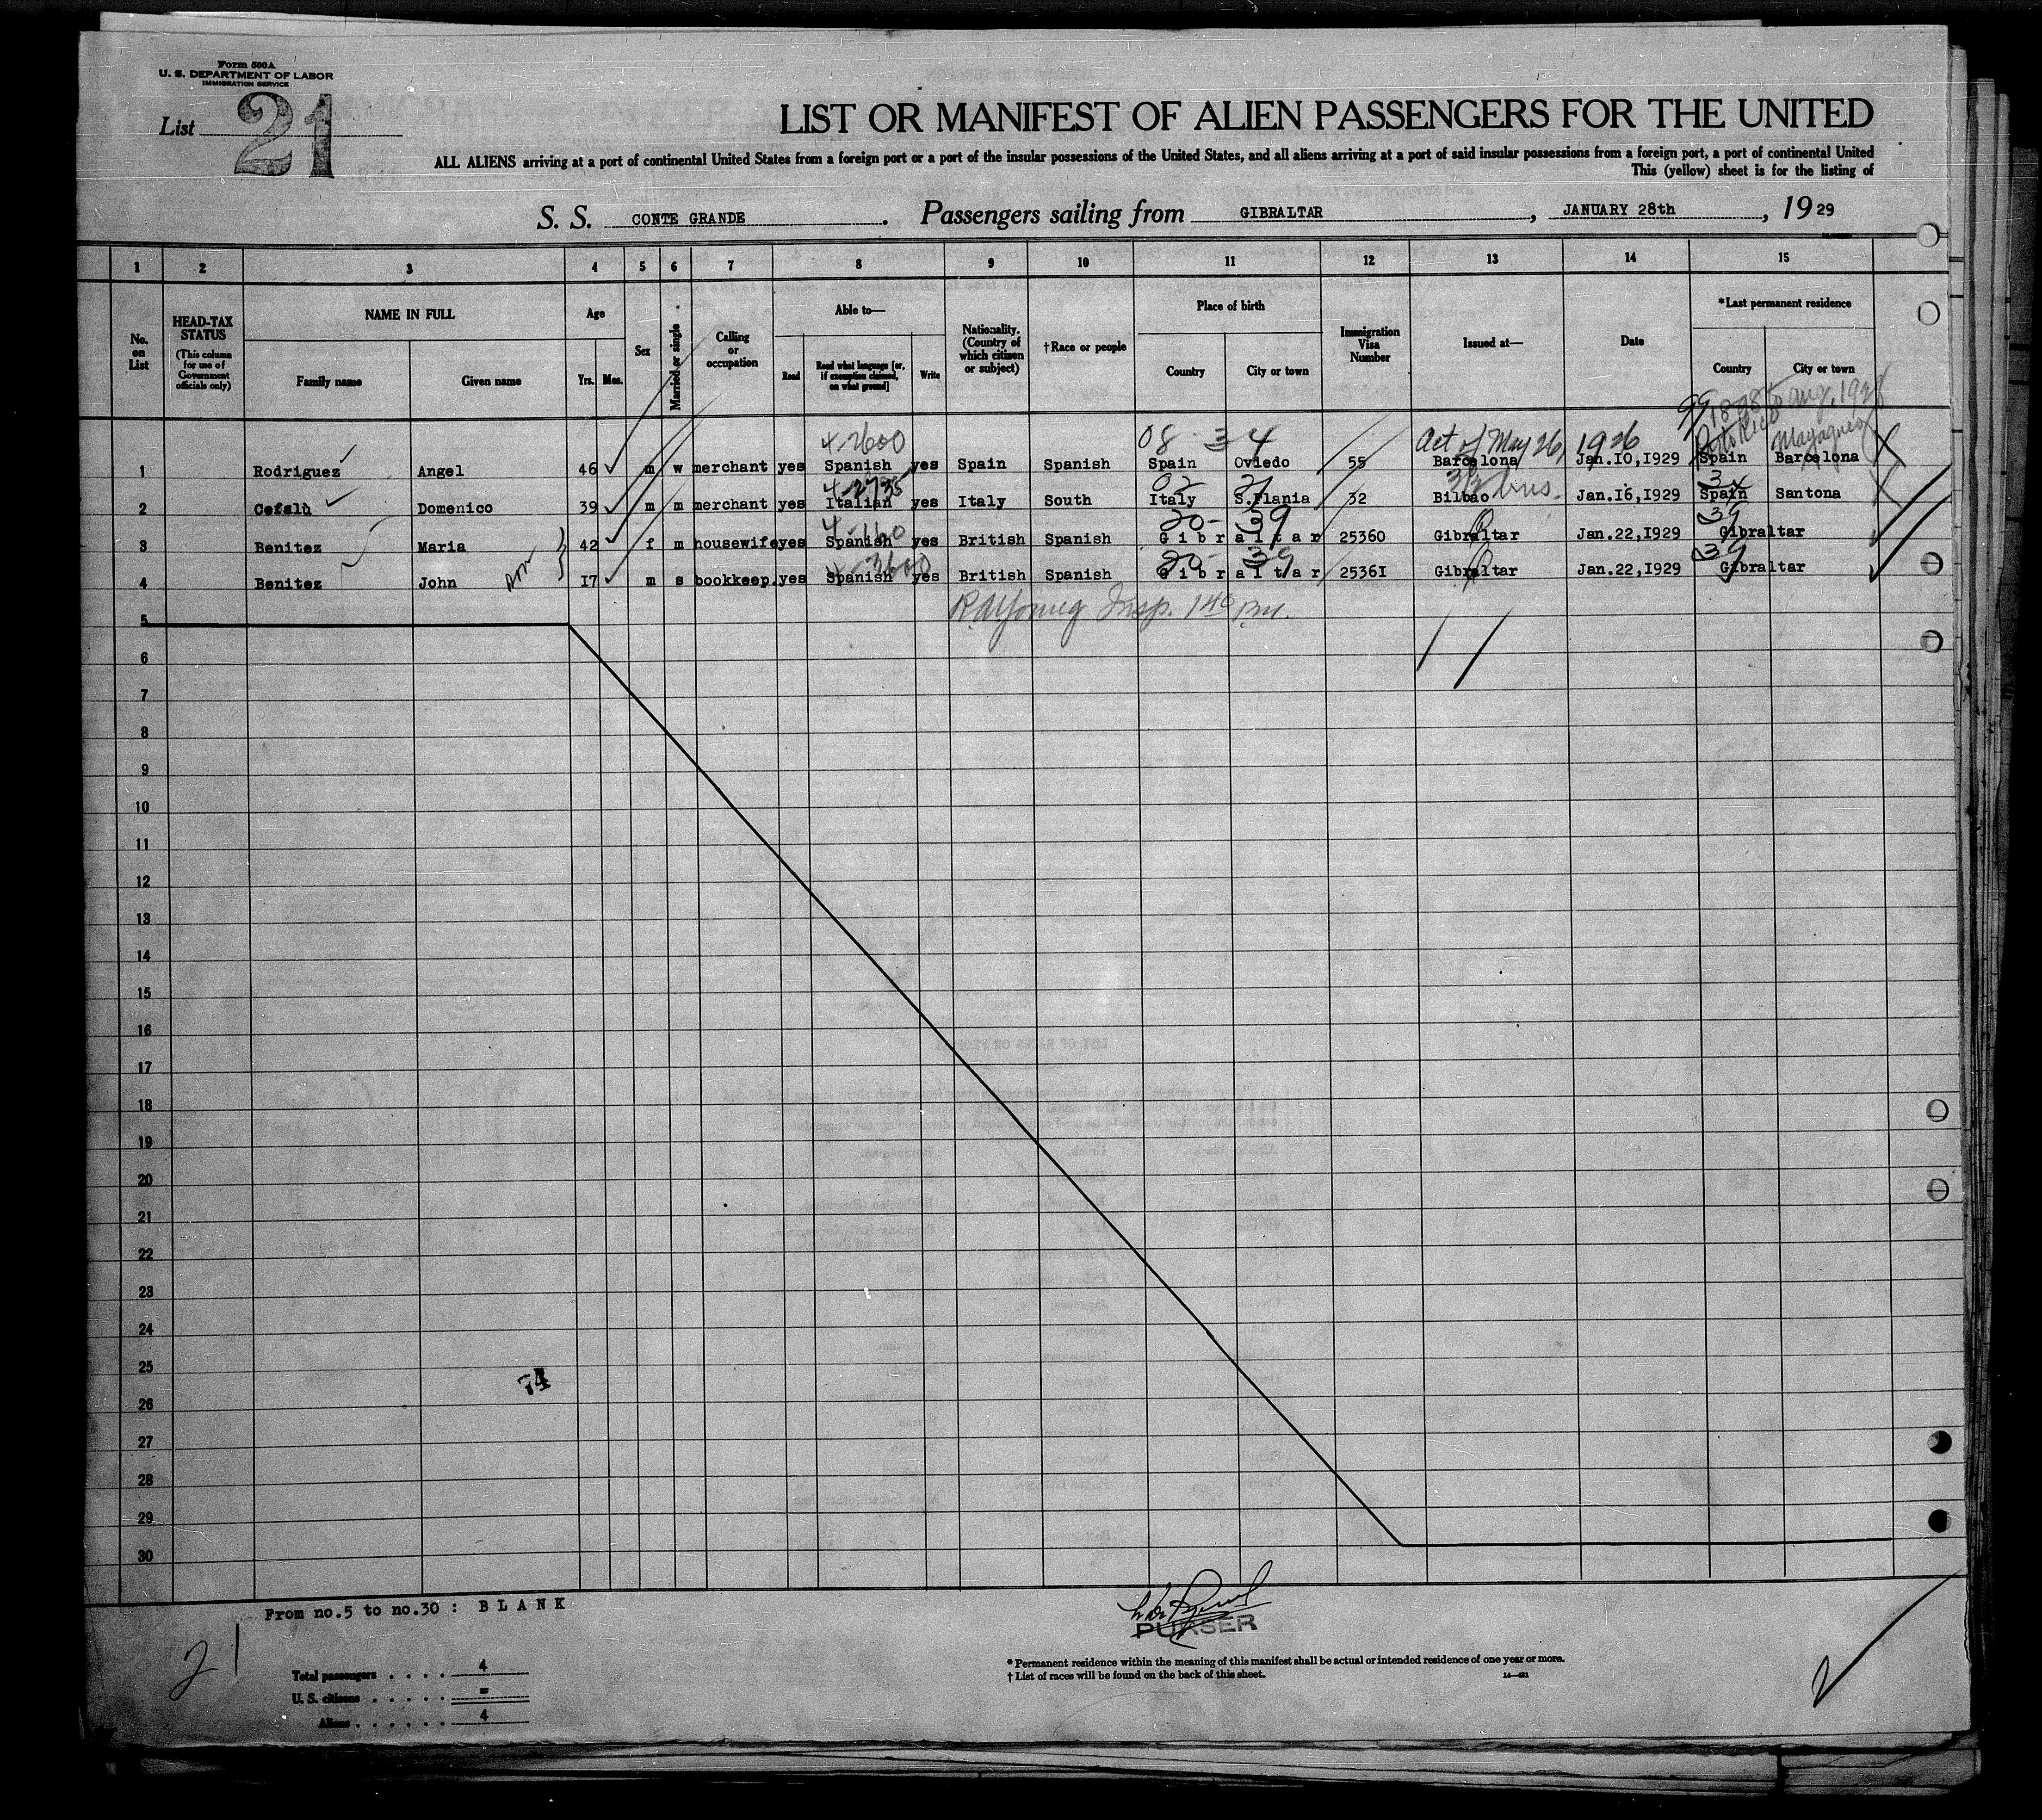 Form 500A
U. S. DEPARTMENT OF LABOR
IMMIGRATION SERVICE
List 21
LIST OR MANIFEST OF ALIEN PASSENGERS FOR THE UNITED
ALL ALIENS arriving at a port of continental United States from a foreign port or a port of the insular possessions of the United States, and all aliens arriving at a port of said insular possessions from a foreign port, a port of continental United
This (yellow) sheet is for the listing of
S. S. CONTE GRANDE. Passengers sailing from GIBRALTAR, JANUARY 28th, 1929
1 2 3 4 5 6 7 8 9 10 11 12 13 14 15
No. on List
HEAD-TAX STATUS (This column for use of Government officials only)
NAME IN FULL
Family name Given name
Age
Yrs. Mos.
Sex
Married or single
Calling or occupation
Able to—
Read Read what language [or, if exemption claimed, on what ground] Write
Nationality. (Country of which citizen or subject)
†Race or people
Place of birth
Country City or town
Immigration Visa Number
Issued at—
Date
*Last permanent residence
Country City or town
99 1898 to Aug, 1928
4-2600 08 34 Act of May 26, 1926 Porto Rico Mayaguez
1 Rodriguez Angel 46 m w merchant yes Spanish yes Spain Spanish Spain Oviedo 55 Barcelona Jan.10,1929 Spain Barcelona
4-2735 02 21 3/2 bus. 34
2 Cefalù Domenico 39 m m merchant yes Italian yes Italy South Italy S.Flania 32 Bilbao Jan.16,1929 Spain Santona
20- 39 39
3 Benitez Maria 42 f m housewife yes Spanish yes British Spanish Gibraltar 25360 Gibraltar Jan.22,1929 Gibraltar
20- 39 39
4 Benitez John son 17 m s bookkeep. yes Spanish yes British Spanish Gibraltar 25361 Gibraltar Jan.22,1929 Gibraltar
Insp. 1 40 P.M.
5
6
7
8
9
10
11
12
13
14
15
16
17
18
19
20
21
22
23
24
25
74
26
27
28
29
30
From no.5 to no.30 : BLANK
PURSER
21
Total passengers . . . . 4
U. S. citizens . . . . . =
Aliens . . . . . . 4
* Permanent residence within the meaning of this manifest shall be actual or intended residence of one year or more.
† List of races will be found on the back of this sheet. 14—421